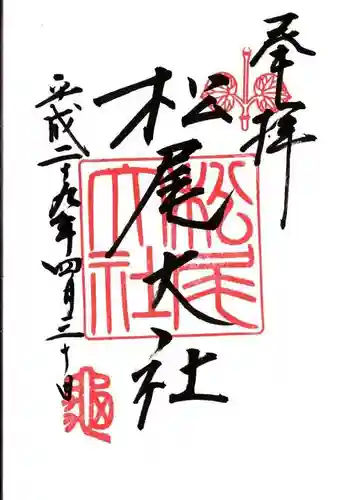 奉拝
松尾大社
平成二十九年四月三十日
松尾大社
亀